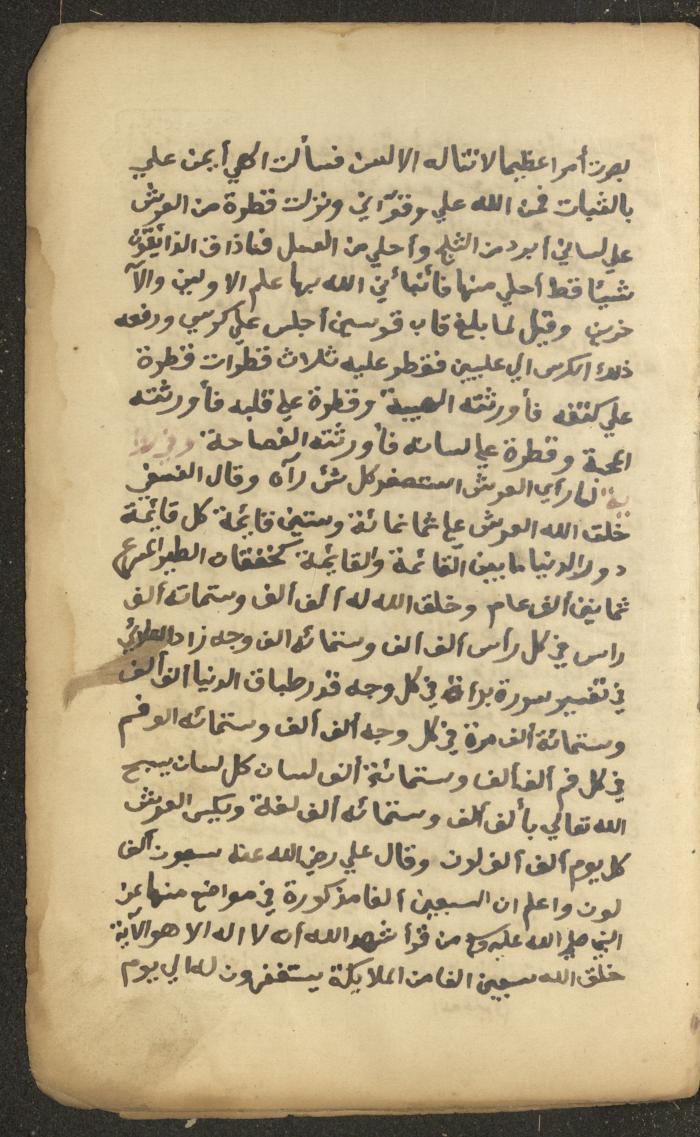 بصرت أمرا عظيما لا تناله الالسن فسألت الهي أيمن علي
بالثبات فمن الله علي وقوّاني ونزلت قطرة من العرش
علي لساني أبرد من الثلج وأحلي من العسل فماذاق الذايقون
شيئا قط أحلي منها فأنبأني الله بها علم الاولين والآ
خرين وقيل لما بلغ قاب قوسين أجلس علي كرسي ورفعه
ذلك الكرسي الي عليين فقطر عليه ثلاث قطرات قطرة
علي كتفه فأورثته الهيبة وقطرة علي قلبه فأورثته
المحبة وقطرة علي لسانه فأورثته الفصاحة وفي روا
ية لما رأي العرش استصغر كل شئ رآه وقال النسفي
خلق الله العرش علي ثمانمائة وستين قايمة كل قايمة
دور الدنيا ما بين القائمة والقايمة كخفقان الطير المسرع
ثمانين ألف عام وخلق الله له ألف ألف وستمائه ألف
راس في كل رأس ألف ألف وستمائه الف وجه زاد العلائي
في تفسير سورة براة في كل وجه قدر طباق الدنيا الف ألف
وستمائة ألف مرة في كل وجه ألف ألف وستمائه الف فم
في كل فم ألف ألف وستمائة ألف لسان كل لسان يسبح
الله تعالي بألف ألف وستمائه ألف لغة ويكسي العرش
كل يوم ألف ألف لون وقال علي رضي الله عنه سبعون ألف
لون واعلم ان السبعين ألفا مذكورة في مواضع منها عن
النبي صلي الله عليه وسلم من قرأ شهد الله أنه لا اله الا هو الآية
خلق الله سبعين الفا من الملايكة يستغفرون له الي يوم